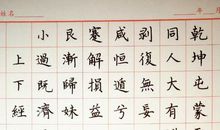 姓名 年 月
乾坤屯蒙
同人大有
剥復無妄
咸恒遁兮
蹇解損益
艮漸歸妹
小過既濟
上下經